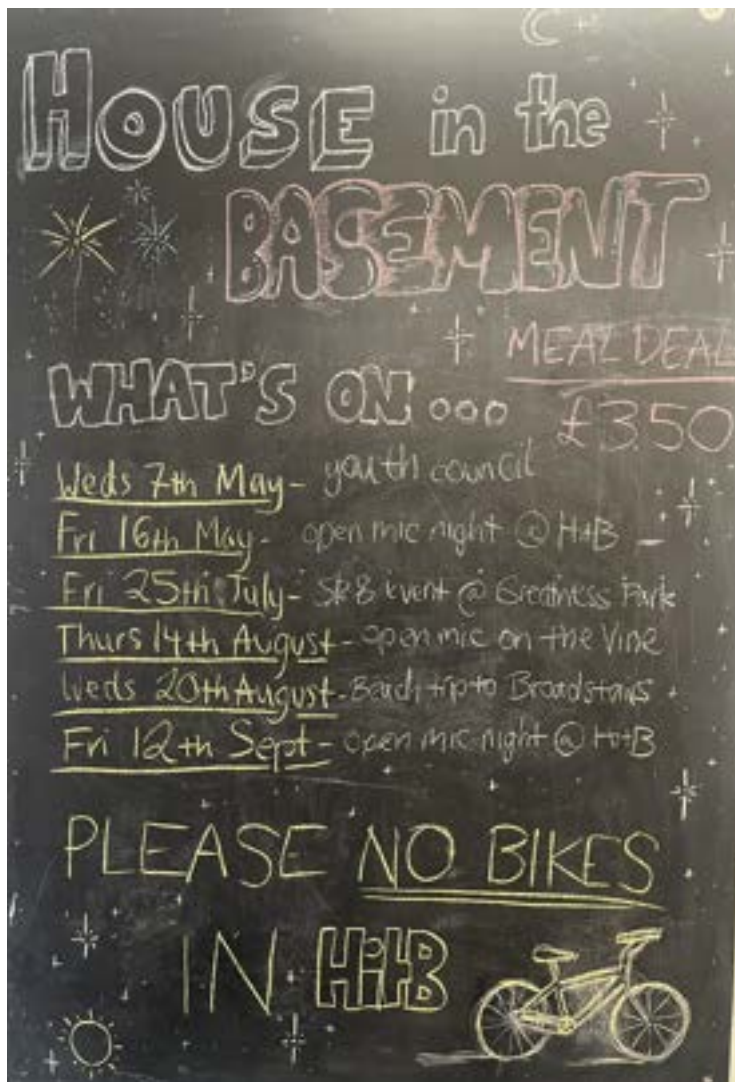 HOUSE in the
BASEMENT
MEAL DEAL
WHAT'S ON...
£3.50
Weds 7th May - youth council
Fri 16th May - open mic night @ HitB
Fri 25th July - Sk8 Event @ Greatness Park
Thurs 14th August - open mic on the Vine
Weds 20th August - Beach trip to Broadstairs
Fri 12th Sept - open mic night @ HitB
PLEASE NO BIKES
IN HitB